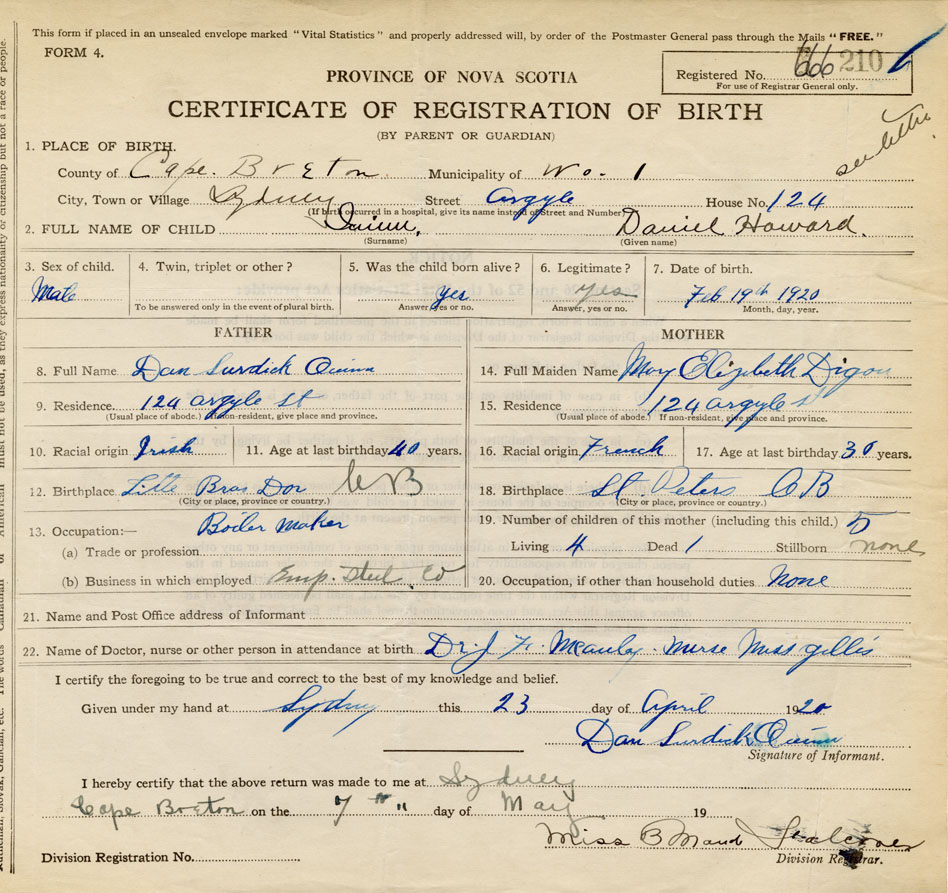 This form if placed in an unsealed envelope marked "Vital Statistics" and properly addressed will, by order of the Postmaster General pass through the Mails "FREE."
FORM 4.
Registered No. 666 210
For use of Registrar General only.
PROVINCE OF NOVA SCOTIA
CERTIFICATE OF REGISTRATION OF BIRTH
(BY PARENT OR GUARDIAN)
see letter
1. PLACE OF BIRTH.
County of Cape. Breton Municipality of Wo. 1
City, Town or Village Sydney Street Argyle House No. 124
(If birth occurred in a hospital, give its name instead of Street and Number)
2. FULL NAME OF CHILD Quinn, Daniel Howard.
(Surname) (Given name)
3. Sex of child. 4. Twin, triplet or other? 5. Was the child born alive? 6. Legitimate? 7. Date of birth.
Male yes yes Feb 19th 1920
To be answered only in the event of plural birth. Answer, yes or no. Answer, yes or no. Month, day, year.
FATHER
8. Full Name Dan Quinn
9. Residence. 124 argyle St
(Usual place of abode.) If non-resident, give place and province.
10. Racial origin Irish 11. Age at last birthday 40 years.
12. Birthplace Litte Bras Dor CB
(City or place, province or country.)
13. Occupation:— Boiler Maker
(a) Trade or profession
(b) Business in which employed Emp. Steel Co
MOTHER
14. Full Maiden Name May Elizibeth Digou
15. Residence 124 argyle st
(Usual place of abode.) If non-resident, give place and province.
16. Racial origin French 17. Age at last birthday 30 years.
18. Birthplace St. Peters CB
(City or place, province or country.)
19. Number of children of this mother (including this child.) 5
Living 4 Dead 1 Stillborn none
20. Occupation, if other than household duties None
21. Name and Post Office address of Informant
22. Name of Doctor, nurse or other person in attendance at birth Dr J F. McAulay. Nurse Miss gillis
I certify the foregoing to be true and correct to the best of my knowledge and belief.
Given under my hand at Sydney this 23 day of April 1920
Dan Quinn
Signature of Informant.
I hereby certify that the above return was made to me at Sydney
Cape Breton on the 7 th day of May 19
Miss B Maud
Division Registrar.
Division Registration No.